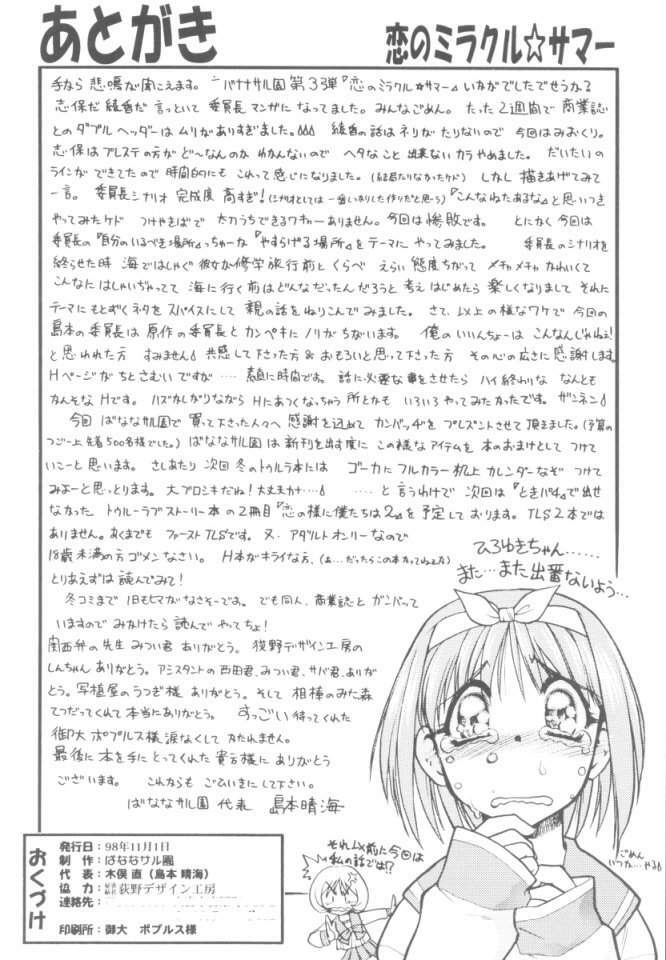 あとがき
恋のミラクル☆サマー
手なら 悲鳴が聞こえます。 バナナサル園 第33弾『恋のミラクル☆サマー』いかがでしたでせうかる
志保だ 綾香だ 言っといて 委員長マンガに なってました。みんなごめん。 たった2週間で 商業誌
とのダブルヘッダーは ムリがありすぎました。 綾香の話は ネリが たりないので 今回はみおくり。
志保は プレステの方が ど〜なんのか わかんないので ヘタなこと 出来ない カラ やめました。 だいたいの
ラインが できてたので 時間的にも これって 感じになりました。 しかし 描きあげてみて
一言。 委員長シナリオ 完成度 高すぎ! 『こんなねたあるな』と思いつき
やってみたケド つけやきばで 太刀うちできるワキャーありません。今回は惨敗です。 とにかく 今回は
委員長の『自分のいるべき場所』っちゅーか『やすらげる場所』をテーマに やってみました。 委員長のシナリオを
終らせた時 海ではしゃぐ 彼女が 修学旅行前と くらべ えらい 態度ちがって メチャメチャ かわいくて
こんなに はしゃいじゃって 海に行く前は どんなだったんだろうと 考え はじめたら 楽しくなりまして それに
テーマにもとずくネタを スパイスにして 親の話を ねりこんでみました。 さて、以上の様なワケで 今回の
島本の委員長は 原作の委員長と カンペキに ノリが ちがいます。 俺の いいんちょーは こんなんじゃねぇ!
と思われた方 すみません 共感して下さった方& おもろいと思って下さった方 その心の広さに 感謝します。
Hページが ちとさむいですが‥‥ 素直に時間です。 話に必要な 事をさせたら ハイ終わりな なんとも
かんそな Hです。 ハズかしがりながら Hにあつくなっちゃう 所とかも いろいろ やってみたかったです。 ザンネン
今回 ばななサル園で 買って下さった人々へ 感謝を込めて カンバッヂを プレゼントさせて 頂きました。(予算の
つごー上 先着500名様でした。) ばななサル園は 新刊を出す度に この様なアイテムを 本のおまけとして つけて
いこーと 思います。 さしあたり 次回 冬の トゥルラ本には ゴーカに フルカラー 机上 カレンダーなぞ つけて
みよーと思っとります。 大ブロシキだね! 大丈夫か‥‥ ‥‥と言うわけで 次回は『ときパ4』で出せ
なかった トゥルーラブストーリー本の 2冊目『恋の様に僕たちは2』を 予定して おります。 TLS2本では
ありません。あくまでも ファーストTLSです。 又、アダルトオンリーなので
18歳未満の方 ゴメンなさい。 H本がキライな方、
とりあえずは 読んでみて!
冬コミまで 1日もヒマがなさそーです。 でも 同人、商業誌と ガンバって
いますので みかけたら 読んで やってちょ!
関西弁の先生 みつい君 ありがとう。 荻野デザイン工房の
しんちゃん ありがとう。 アシスタントの 西田君、みつい君、サバ君、ありが
とう。 写植屋の うつぎ様 ありがとう。 そして 相棒の みた森
てつだってくれて 本当にありがとう。 すっごい 待ってくれた
御大 ポプルス様 涙なくして かたれません。
最後に 本を手に とってくれた 貴方様に ありがとう
ございます。 これからも ごひいきに して下さい。
ばななサル園 代表 島本晴海
ひろゆきちゃん……
また…また出番ないよう…
それ以前に今回は
私の話では!?
ごめん
いつか…やる
おくづけ
発行日：98年11月1日
制作：ばななサル園
代表：木俣 直（島本 晴海）
協力：荻野デザイン工房
連絡先：
印刷所：御大 ポプルス様